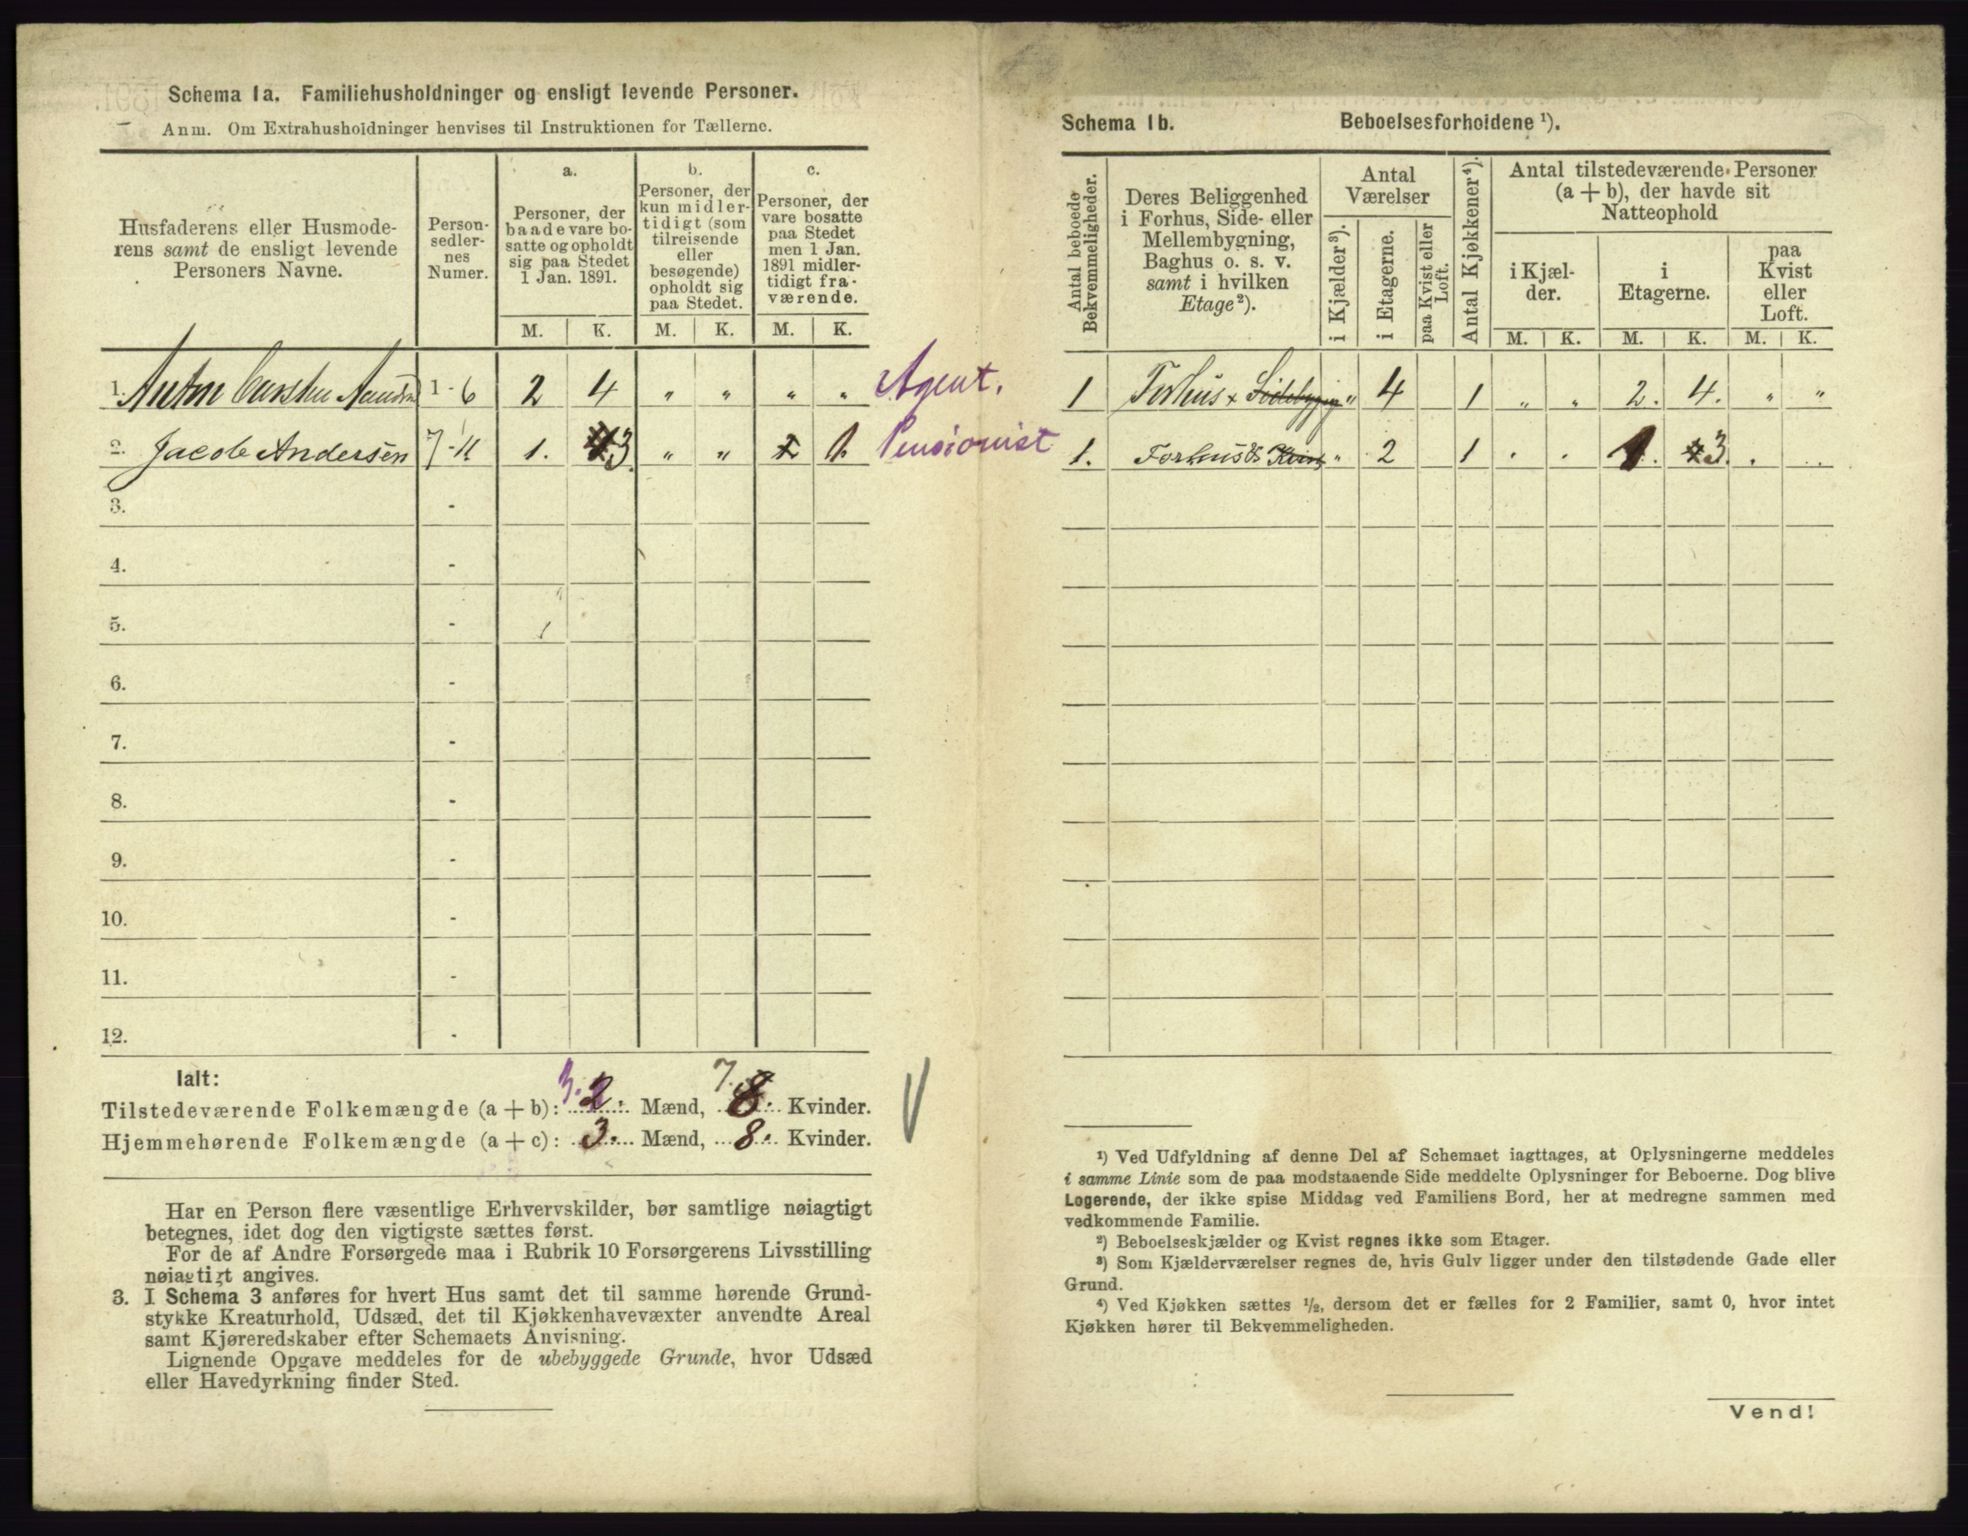 Schema 1a. Familiehusholdninger og ensligt levende Personer.
Anm. Om Extrahusholdninger henvises til Instruktionen for Tællerne.
Husfaderens eller Husmoderens samt de ensligt levende Personers Navne.
Personsedlernes Numer.
a. Personer, der baade vare bosatte og opholdt sig paa Stedet 1 Jan. 1891.
b. Personer, der kun midlertidigt (som tilreisende eller besøgende) opholdt sig paa Stedet.
c. Personer, der vare bosatte paa Stedet men 1 Jan. 1891 midlertidigt fraværende.
M. K. M. K. M. K.
1. Anton Carsten 1-6 2 4 " " " " Agent.
2. Jacob Andersen 7-11 1. 3 " " 1. Pensionist
3. -
4. -
5. -
6. -
7. -
8. -
9. -
10. -
11. -
12. -
Ialt:
Tilstedeværende Folkemængde (a + b): 3. 2. Mænd, 7. 8. Kvinder.
Hjemmehørende Folkemængde (a + c): 3. Mænd, 8. Kvinder.
Har en Person flere væsentlige Erhvervskilder, bør samtlige nøiagtigt
betegnes, idet dog den vigtigste sættes først.
For de af Andre Forsørgede maa i Rubrik 10 Forsørgerens Livsstilling
nøiagtigt angives.
3. I Schema 3 anføres for hvert Hus samt det til samme hørende Grund-
stykke Kreaturhold, Udsæd, det til Kjøkkenhavevæxter anvendte Areal
samt Kjøreredskaber efter Schemaets Anvisning.
Lignende Opgave meddeles for de ubebyggede Grunde, hvor Udsæd
eller Havedyrkning finder Sted.
Schema 1b. Beboelsesforholdene ¹).
Antal beboede Bekvemmeligheder.
Deres Beliggenhed i Forhus, Side- eller Mellembygning, Baghus o. s. v. samt i hvilken Etage²).
Antal Værelser
i Kjælder³).
i Etagerne.
paa Kvist eller Loft.
Antal Kjøkkener⁴).
Antal tilstedeværende Personer (a + b), der havde sit Natteophold
i Kjælder.
i Etagerne.
paa Kvist eller Loft.
M. K. M. K. M. K.
1 Forhus + Sidebygning " 4 1 " " 2. 4. " "
1. Forhus & Kvist " 2 1 . . 1. 3. . .
¹) Ved Udfyldning af denne Del af Schemaet iagttages, at Oplysningerne meddeles
i samme Linie som de paa modstaaende Side meddelte Oplysninger for Beboerne. Dog blive
Logerende, der ikke spise Middag ved Familiens Bord, her at medregne sammen med
vedkommende Familie.
²) Beboelseskjælder og Kvist regnes ikke som Etager.
³) Som Kjælderværelser regnes de, hvis Gulv ligger under den tilstødende Gade eller
Grund.
⁴) Ved Kjøkken sættes ½, dersom det er fælles for 2 Familier, samt 0, hvor intet
Kjøkken hører til Bekvemmeligheden.
Vend!